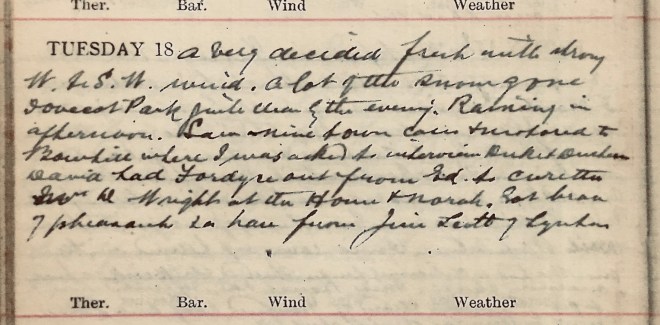 Ther. Bar. Wind Weather
TUESDAY 18 A very decided fresh with strong
W. to S. W. wind. A lot of the snow gone
Dovecot Park quite clear by the evening. Raining in
afternoon. Saw nine town cases & motored to
Bowhill where I was asked to interview Duke & Duchess
David had Fordyce out from Ed. to curette
Mrs W Wright at the Home & Norah. Got brace
of pheasants & a hare from Jim Scott of Synton
Ther. Bar. Wind Weather